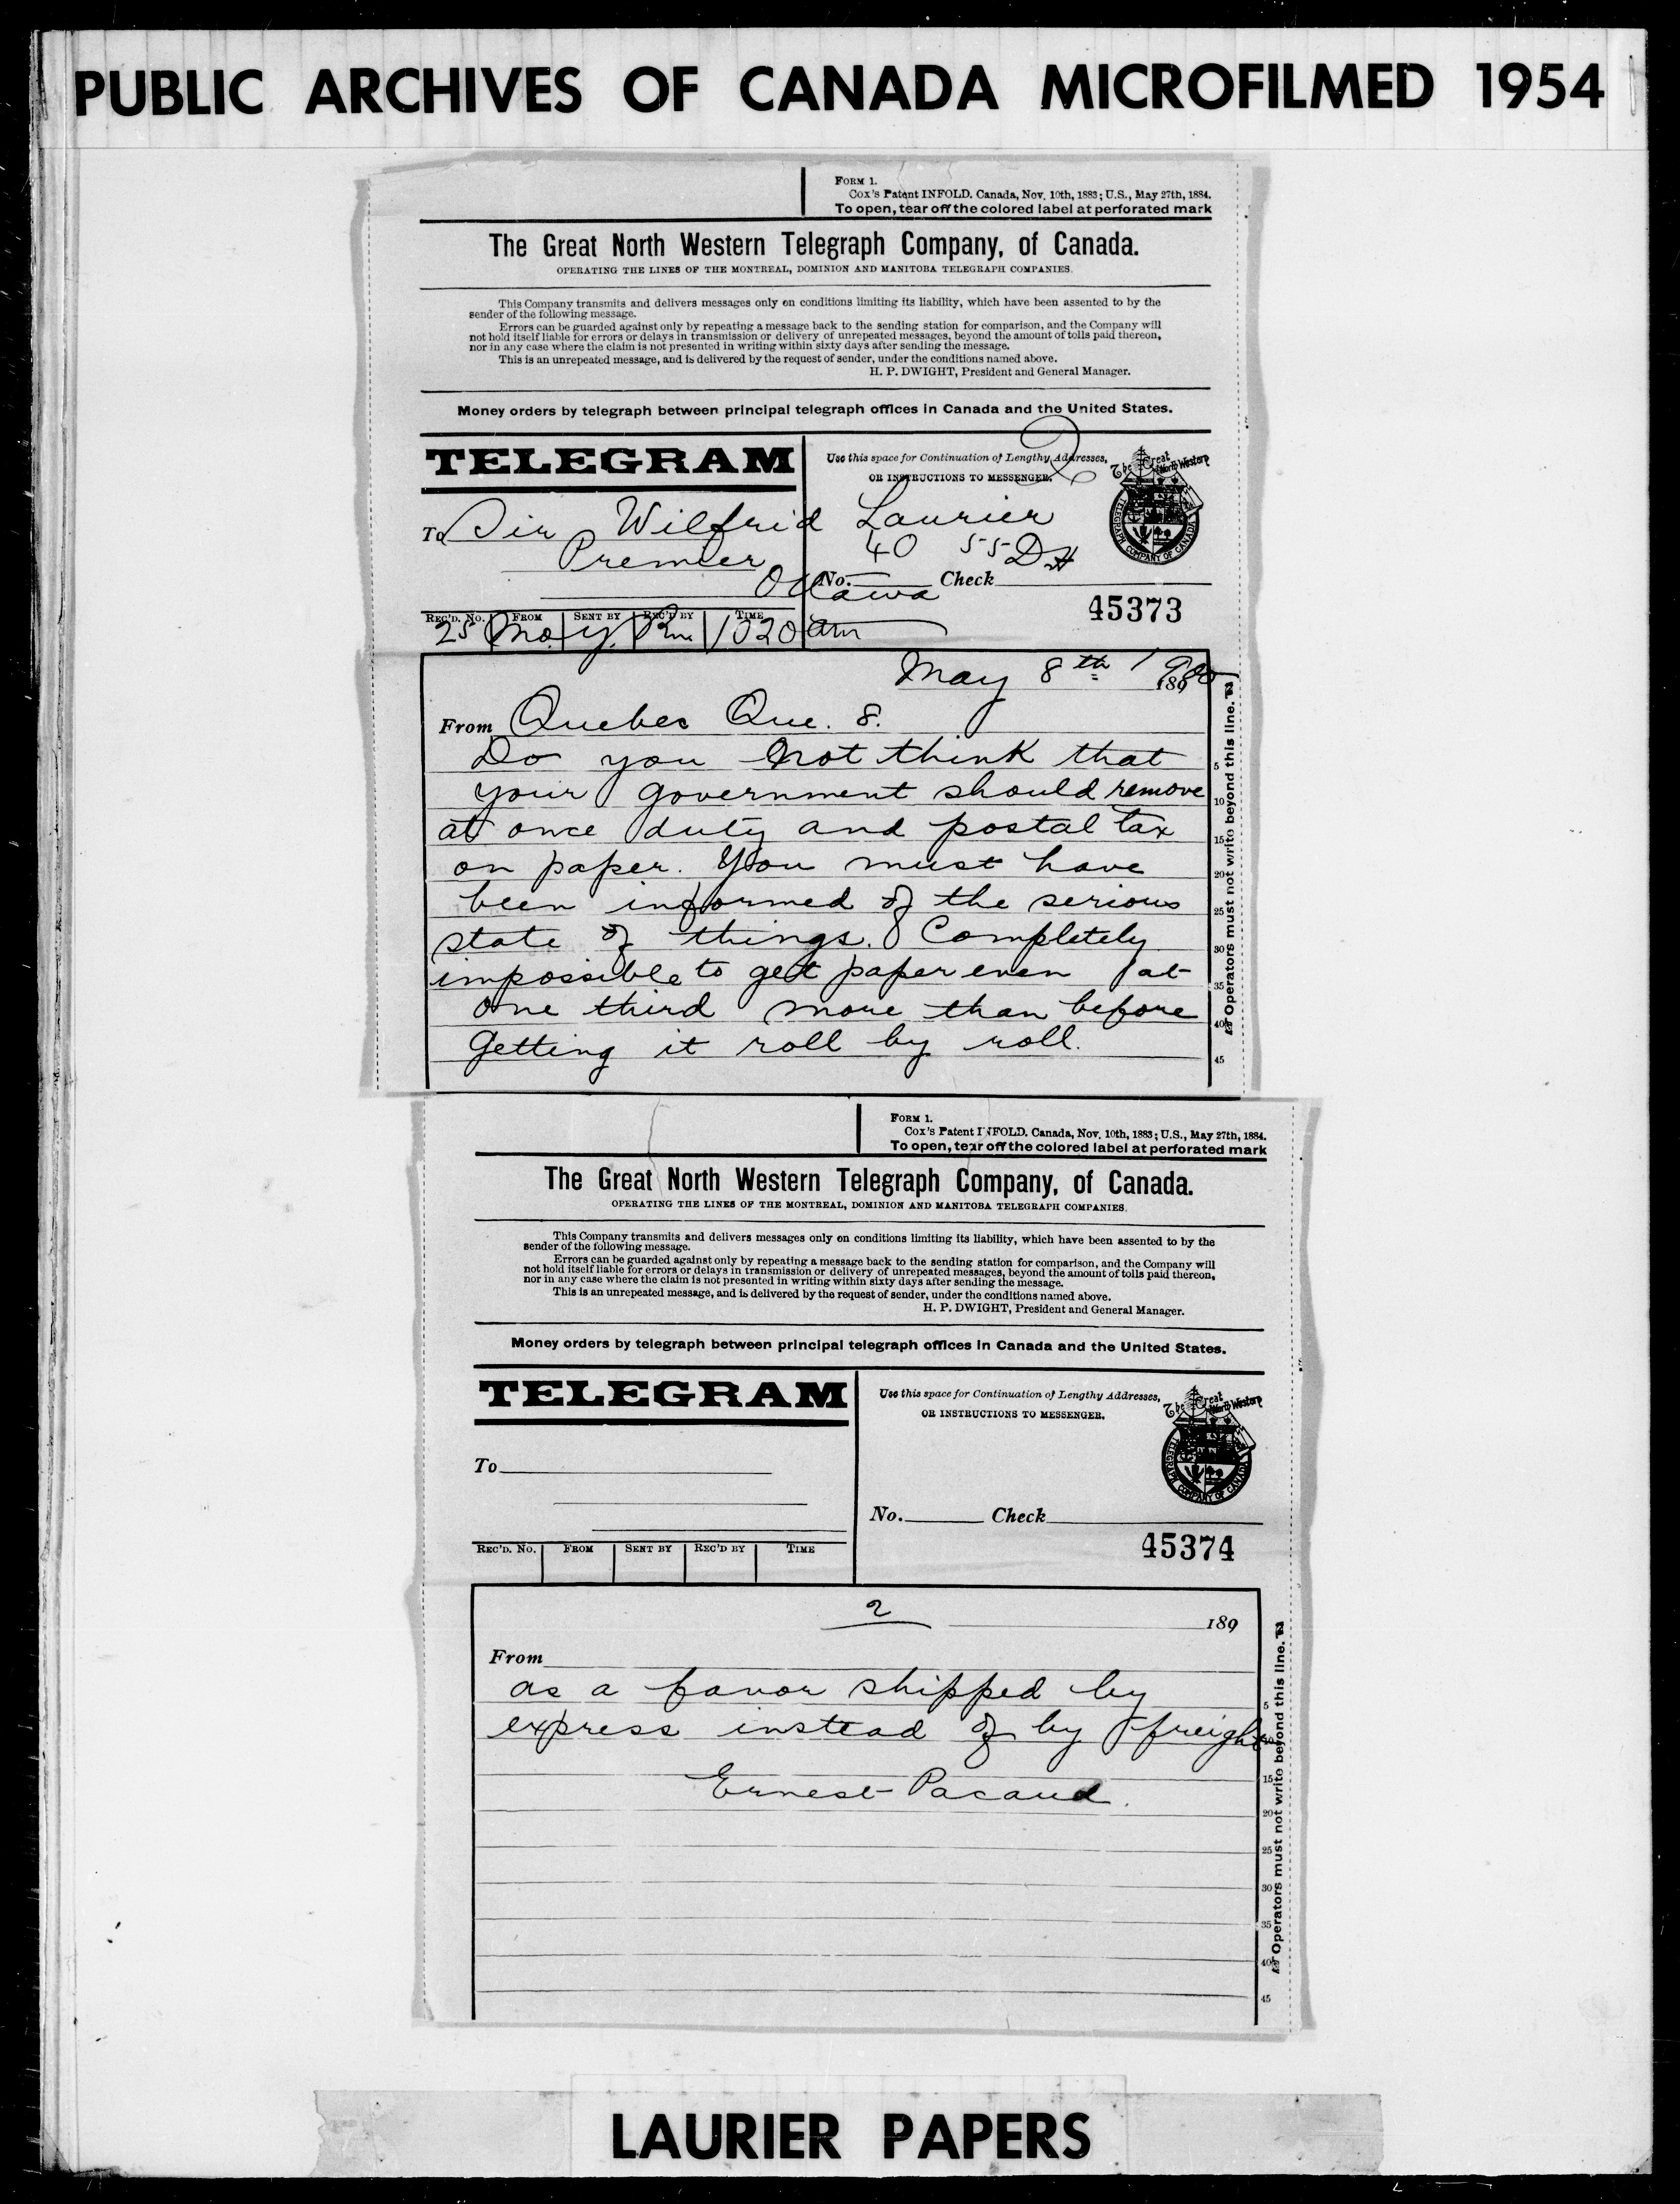 PUBLIC ARCHIVES OF CANADA MICROFILMED 1954
FORM 1.
Cox's Patent INFOLD. Canada, Nov. 10th, 1883; U.S., May 27th, 1884.
To open, tear off the colored label at perforated mark
The Great North Western Telegraph Company, of Canada.
OPERATING THE LINES OF THE MONTREAL, DOMINION AND MANITOBA TELEGRAPH COMPANIES.
This Company transmits and delivers messages only on conditions limiting its liability, which have been assented to by the
sender of the following message.
Errors can be guarded against only by repeating a message back to the sending station for comparison, and the Company will
not hold itself liable for errors or delays in transmission or delivery of unrepeated messages, beyond the amount of tolls paid thereon,
nor in any case where the claim is not presented in writing within sixty days after sending the message.
This is an unrepeated message, and is delivered by the request of sender, under the conditions named above.
H. P. DWIGHT, President and General Manager.
Money orders by telegraph between principal telegraph offices in Canada and the United States.
TELEGRAM
Use this space for Continuation of Lengthy Addresses,
OR INSTRUCTIONS TO MESSENGER.
2
The Great North Western
TELEGRAPH COMPANY OF CANADA
To Sir Wilfrid Laurier
Premier
40 55 DH
Ottawa
No. Check
45373
REC'D. No. FROM SENT BY REC'D BY TIME
25 Mo. y. 1020 am
May 8th 1900
189
From Quebec Que. 8.
Do you not think that
your government should remove
at once duty and postal tax
on paper. You must have
been informed of the serious
state of things. Completely
impossible to get paper even at
one third more than before
Getting it roll by roll.
5
10
15
20
25
30
35
40
45
Operators must not write beyond this line.
FORM 1.
Cox's Patent INFOLD. Canada, Nov. 10th, 1883; U.S., May 27th, 1884.
To open, tear off the colored label at perforated mark
The Great North Western Telegraph Company, of Canada.
OPERATING THE LINES OF THE MONTREAL, DOMINION AND MANITOBA TELEGRAPH COMPANIES.
This Company transmits and delivers messages only on conditions limiting its liability, which have been assented to by the
sender of the following message.
Errors can be guarded against only by repeating a message back to the sending station for comparison, and the Company will
not hold itself liable for errors or delays in transmission or delivery of unrepeated messages, beyond the amount of tolls paid thereon,
nor in any case where the claim is not presented in writing within sixty days after sending the message.
This is an unrepeated message, and is delivered by the request of sender, under the conditions named above.
H. P. DWIGHT, President and General Manager.
Money orders by telegraph between principal telegraph offices in Canada and the United States.
TELEGRAM
Use this space for Continuation of Lengthy Addresses,
OR INSTRUCTIONS TO MESSENGER.
The Great North Western
TELEGRAPH COMPANY OF CANADA
To
No. Check
45374
REC'D. No. FROM SENT BY REC'D BY TIME
2
189
From
as a favor shipped by
express instead of by freight
Ernest Pacaud.
5
10
15
20
25
30
35
40
45
Operators must not write beyond this line.
LAURIER PAPERS